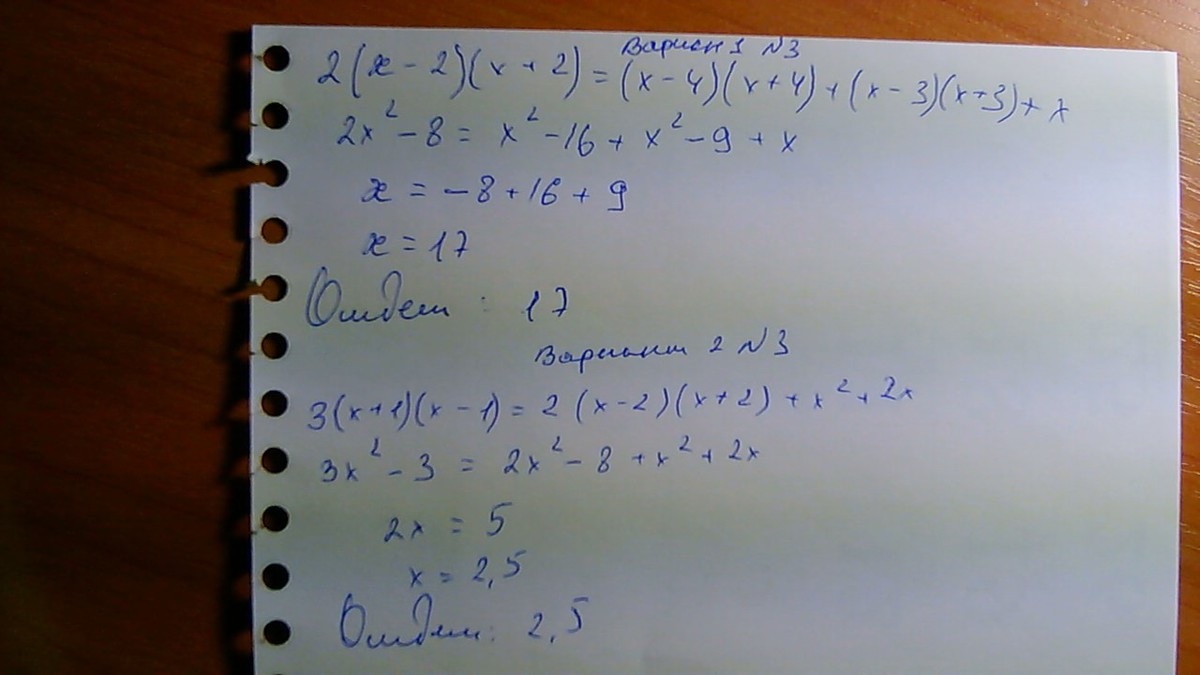 Вариан 1 N3
2(x-2)(x+2)=(x-4)(x+4)+(x-3)(x+3)+x
2x²-8= x²-16+x²-9+x
x=-8+16+9
x=17
Ответ: 17
Вариант 2 N3
3(x+1)(x-1)=2(x-2)(x+2)+x²+2x
3x²-3=2x²-8+x²+2x
2x=5
x=2,5
Ответ: 2,5